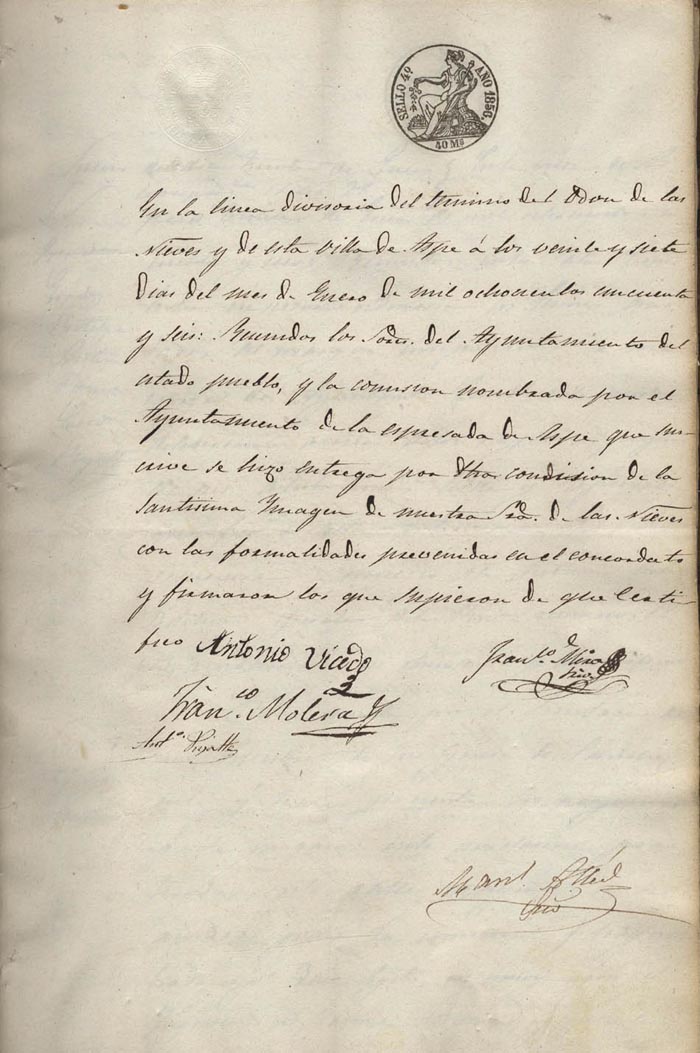 SELLO 4º AÑO 1856.
40 Ms
En la linea divisoria del termino del Odon de las
Nieves y de esta villa de Aspe á los veinte y siete
dias del mes de Enero de mil ochocientos cincuenta
y seis: Reunidos los Sores. del Ayuntamiento del
citado pueblo, y la comision nombrada por el
Ayuntamiento de la espresada de Aspe que sus-
crive se hizo entrega por dha condision de la
Santisima Ymagen de nuestra Sra. de las Nieves
con las formalidades prevenidas en el concordato
y firmaron los que supieron de que Certi-
fico Antonio Vicedo
Franco. de Mira
Srio
Franco. Molera
Anto.
Manl.
Srio